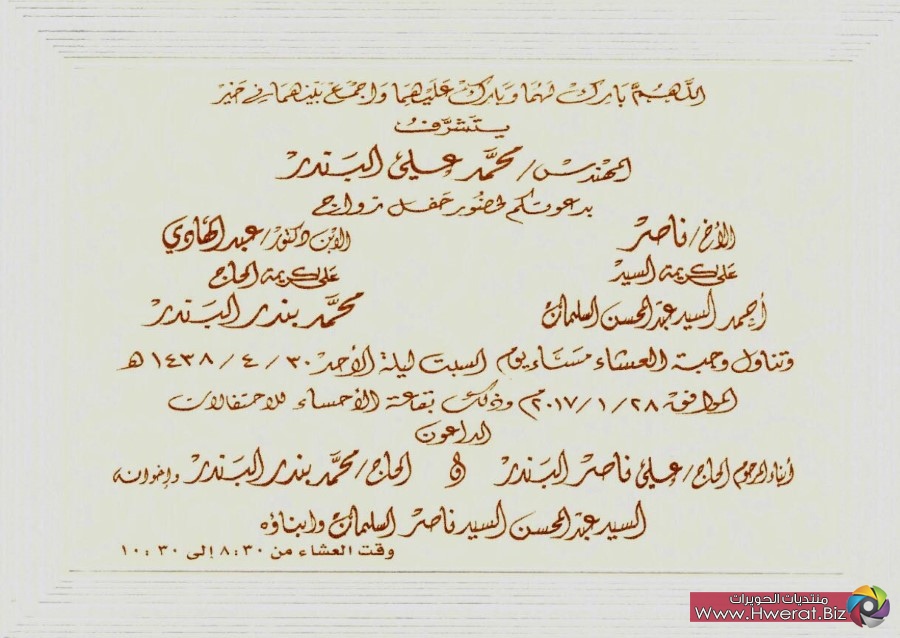 اللهم بارك لهما وبارك عليهما واجمع بينهما في خير
يتشرف
المهندس/ محمد علي البندر
بدعوتكم لحضور حفل زواج
الأخ/ ناصر
على كريمة السيد
أحمد السيد عبدالمحسن السلمان
الابن دكتور/ عبدالهادي
على كريمة الحاج
محمد بندر البندر
وتناول وجبة العشاء مساء يوم السبت ليلة الأحد ٣٠ / ٤ / ١٤٣٨ هـ
الموافق ٢٨ / ١ / ٢٠١٧م وذلك بقاعة الأحساء للاحتفالات
الداعون
أبناء المرحوم الحاج/ علي ناصر البندر الحاج/ محمد بندر البندر وإخوانه
السيد عبدالمحسن السيد ناصر السلمان وأبناؤه
وقت العشاء من ٨:٣٠ إلى ١٠:٣٠
منتديات الحويرات
Www.Hwerat.Biz